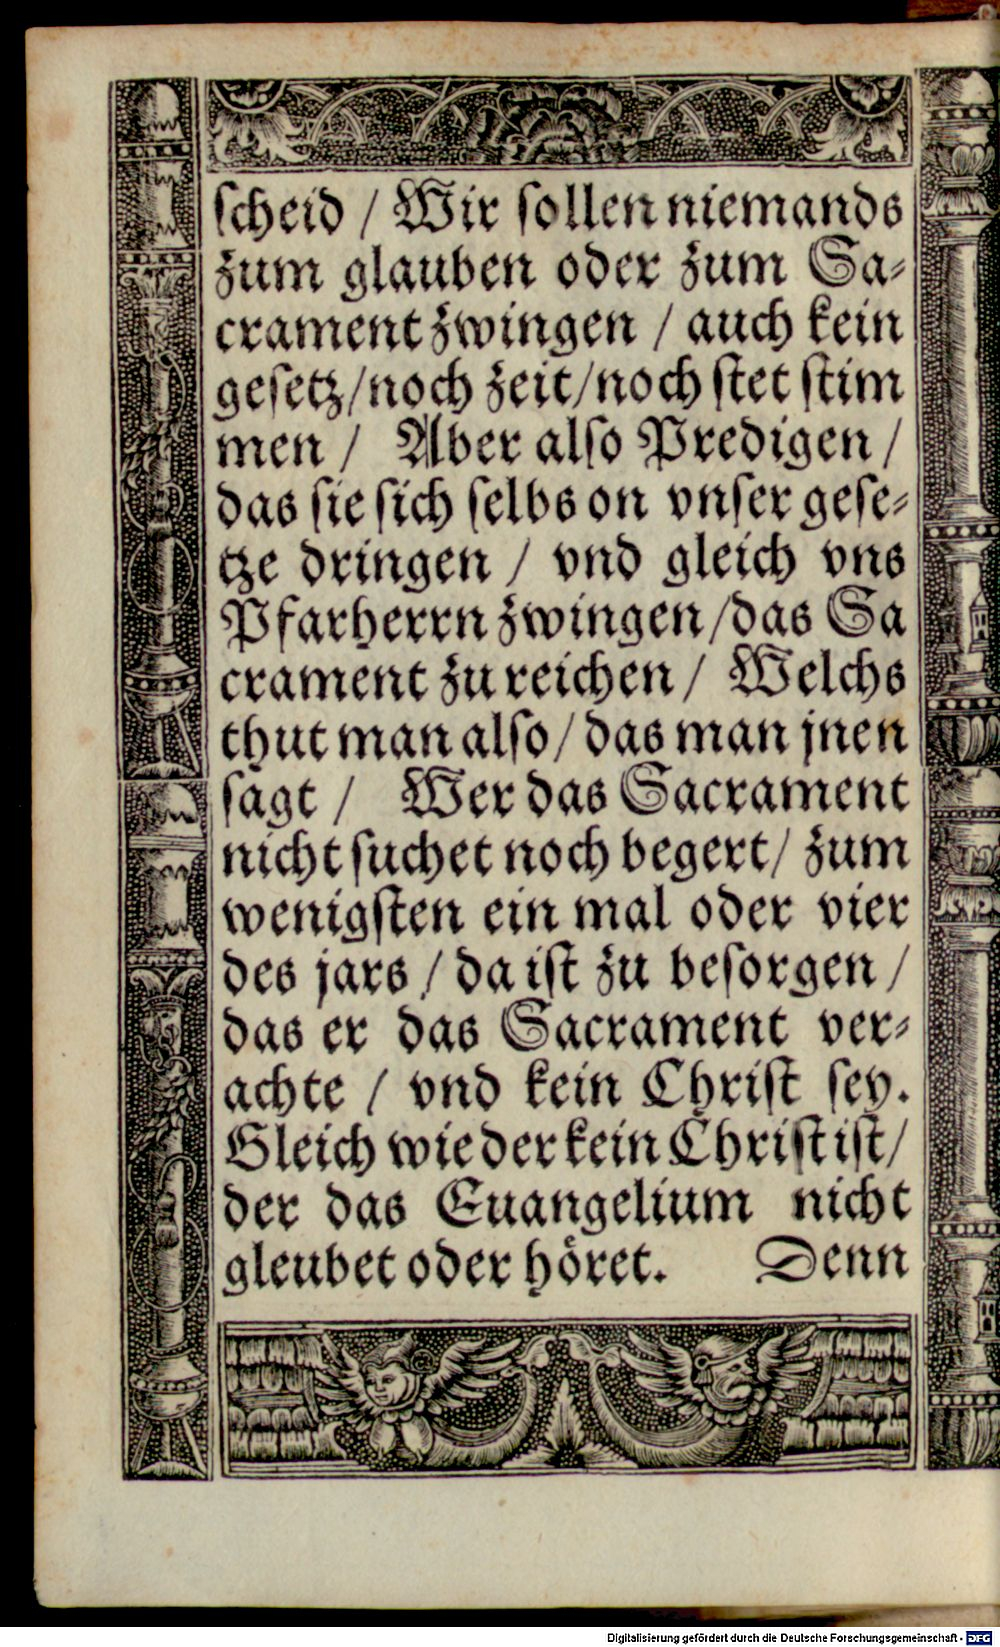 scheid / Wir sollen niemands
zum glauben oder zum Sa-
crament zwingen / auch kein
gesetz/noch zeit/noch stet stim
men / Aber also Predigen /
das sie sich selbs on vnser gese-
tze dringen / vnd gleich vns
Pfarherrn zwingen /das Sa
crament zu reichen / Welchs
thut man also/ das man jnen
sagt / Wer das Sacrament
nicht suchet noch begert/ zum
wenigsten ein mal oder vier
des jars / da ist zu besorgen /
das er das Sacrament ver-
achte / vnd kein Christ sey.
Gleich wie der kein Christ ist/
der das Euangelium nicht
gleubet oder höret. Denn
Digitalisierung gefördert durch die Deutsche Forschungsgemeinschaft - DFG